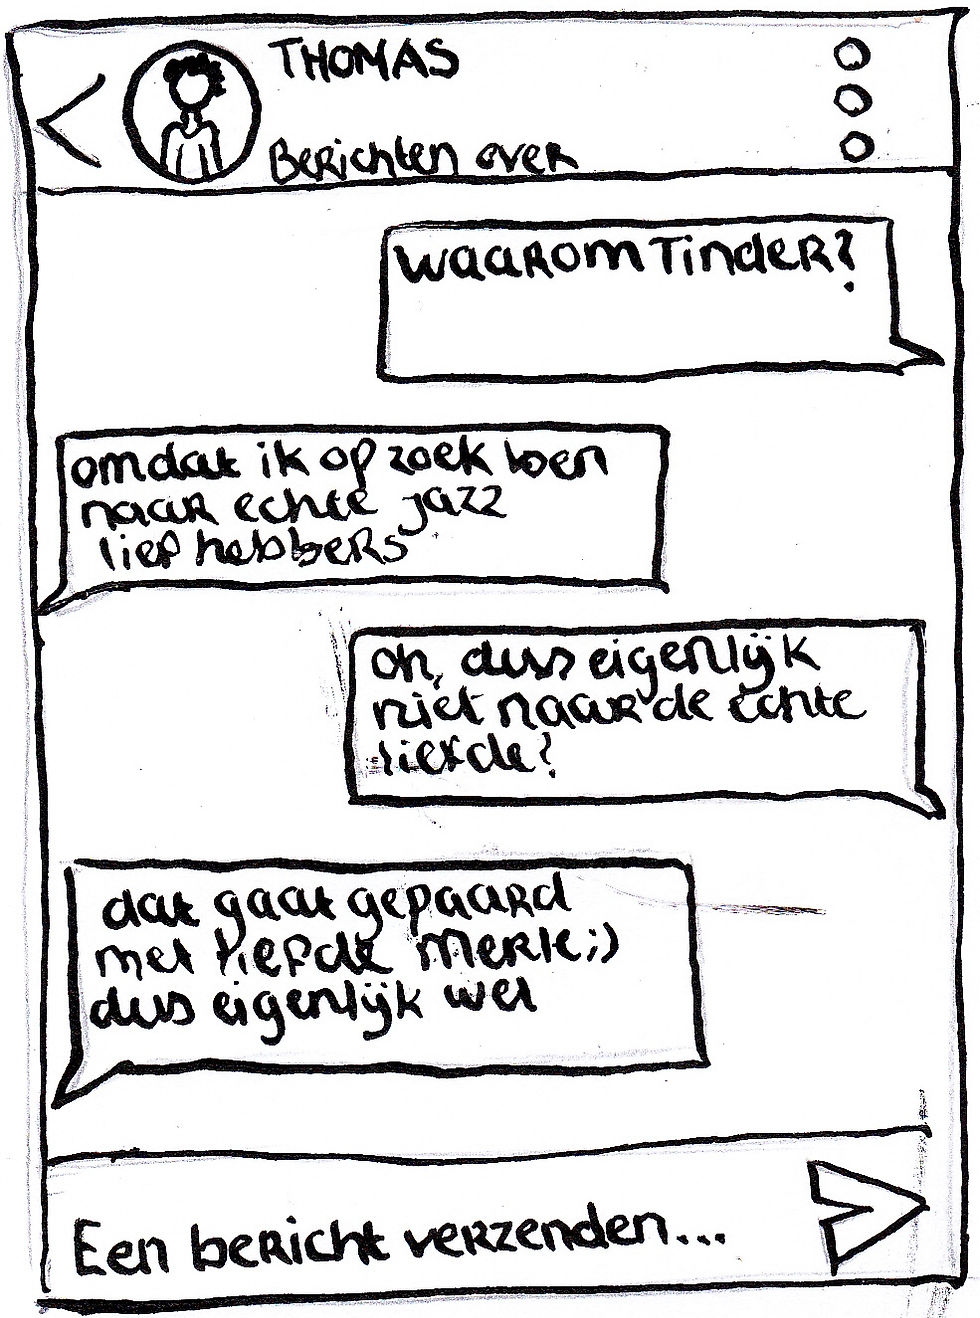 THOMAS
Berichten over
waarom Tinder?
omdat ik op zoek ben
naar echte jazz
liefhebbers
oh, dus eigenlijk
niet naar de echte
liefde?
dat gaat gepaard
met liefde Merle;)
dus eigenlijk wel
Een bericht verzenden...